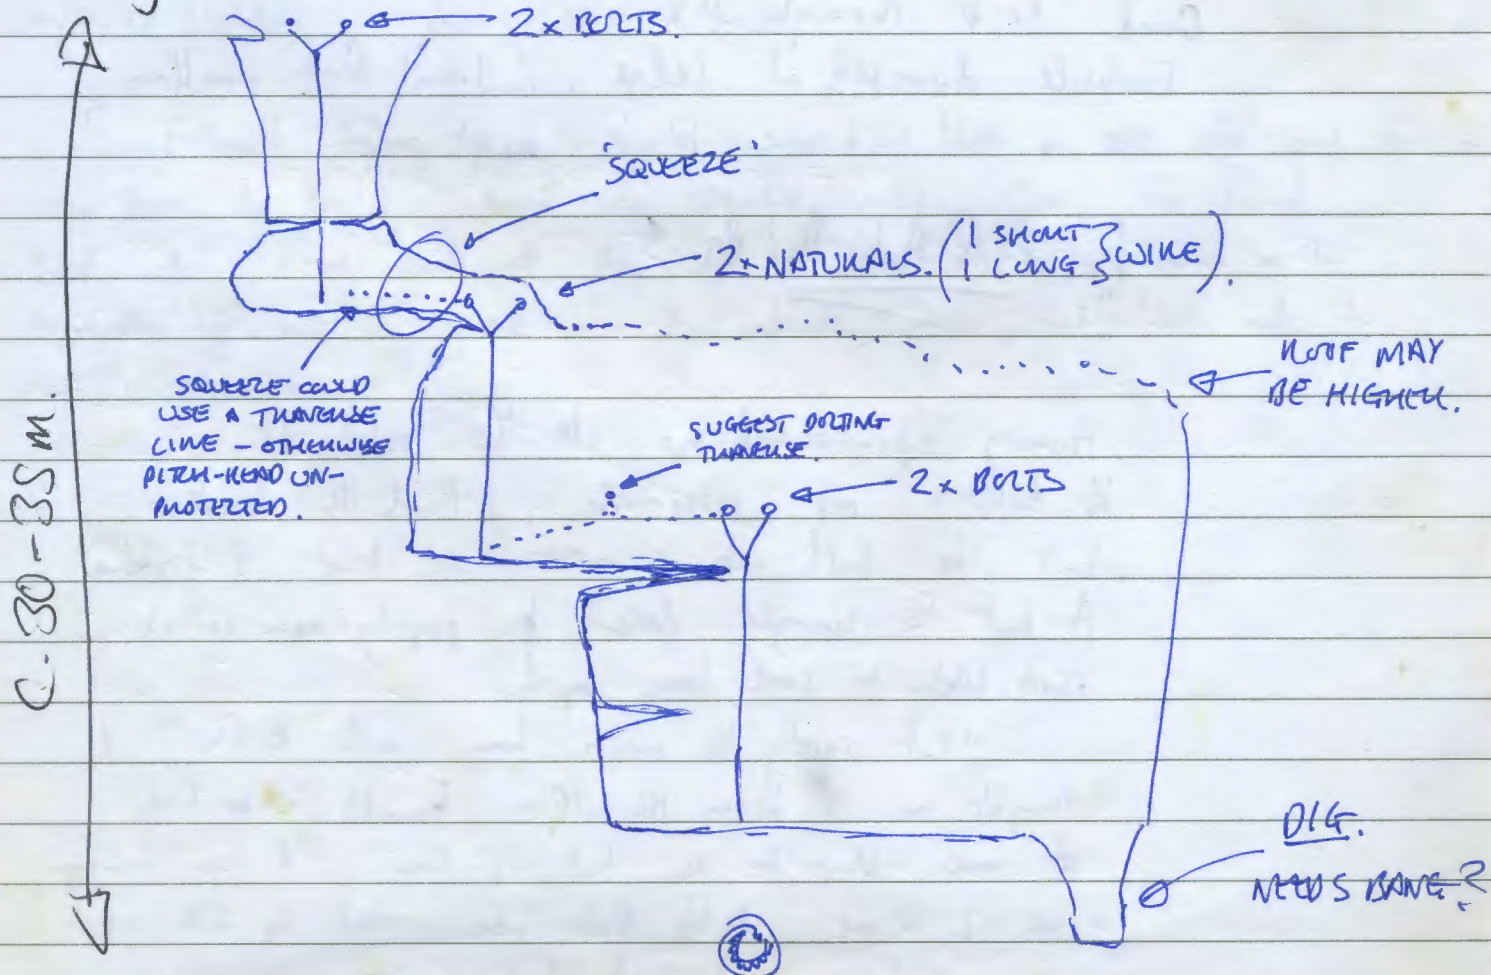 2x BOLTS.
'SQUEEZE'
2x NATURALS. (1 SHORT
1 LONG } WIRE).
SQUEEZE COULD
USE A TRAVERSE
LINE - OTHERWISE
PITCH-HEAD UN-
PROTECTED.
ROOF MAY
BE HIGHER.
SUGGEST BOLTING
TRAVERSE.
2x BOLTS
C. 30-35m.
DIG.
NEEDS BANG?